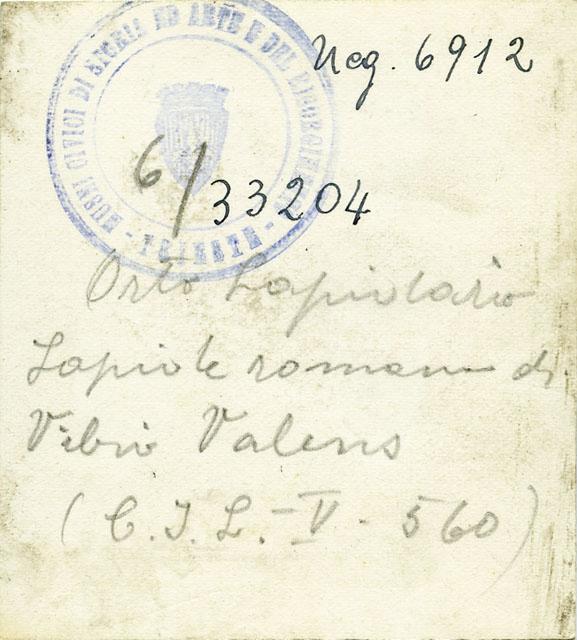 MUSEI CIVICI DI STORIA ED ARTE E DEL RISORGIMENTO - TRIESTE -
Neg. 6912
6/33204
Orto Lapidario
Lapide romana di
Vibio Valens
(C.I.L. - V - 560)